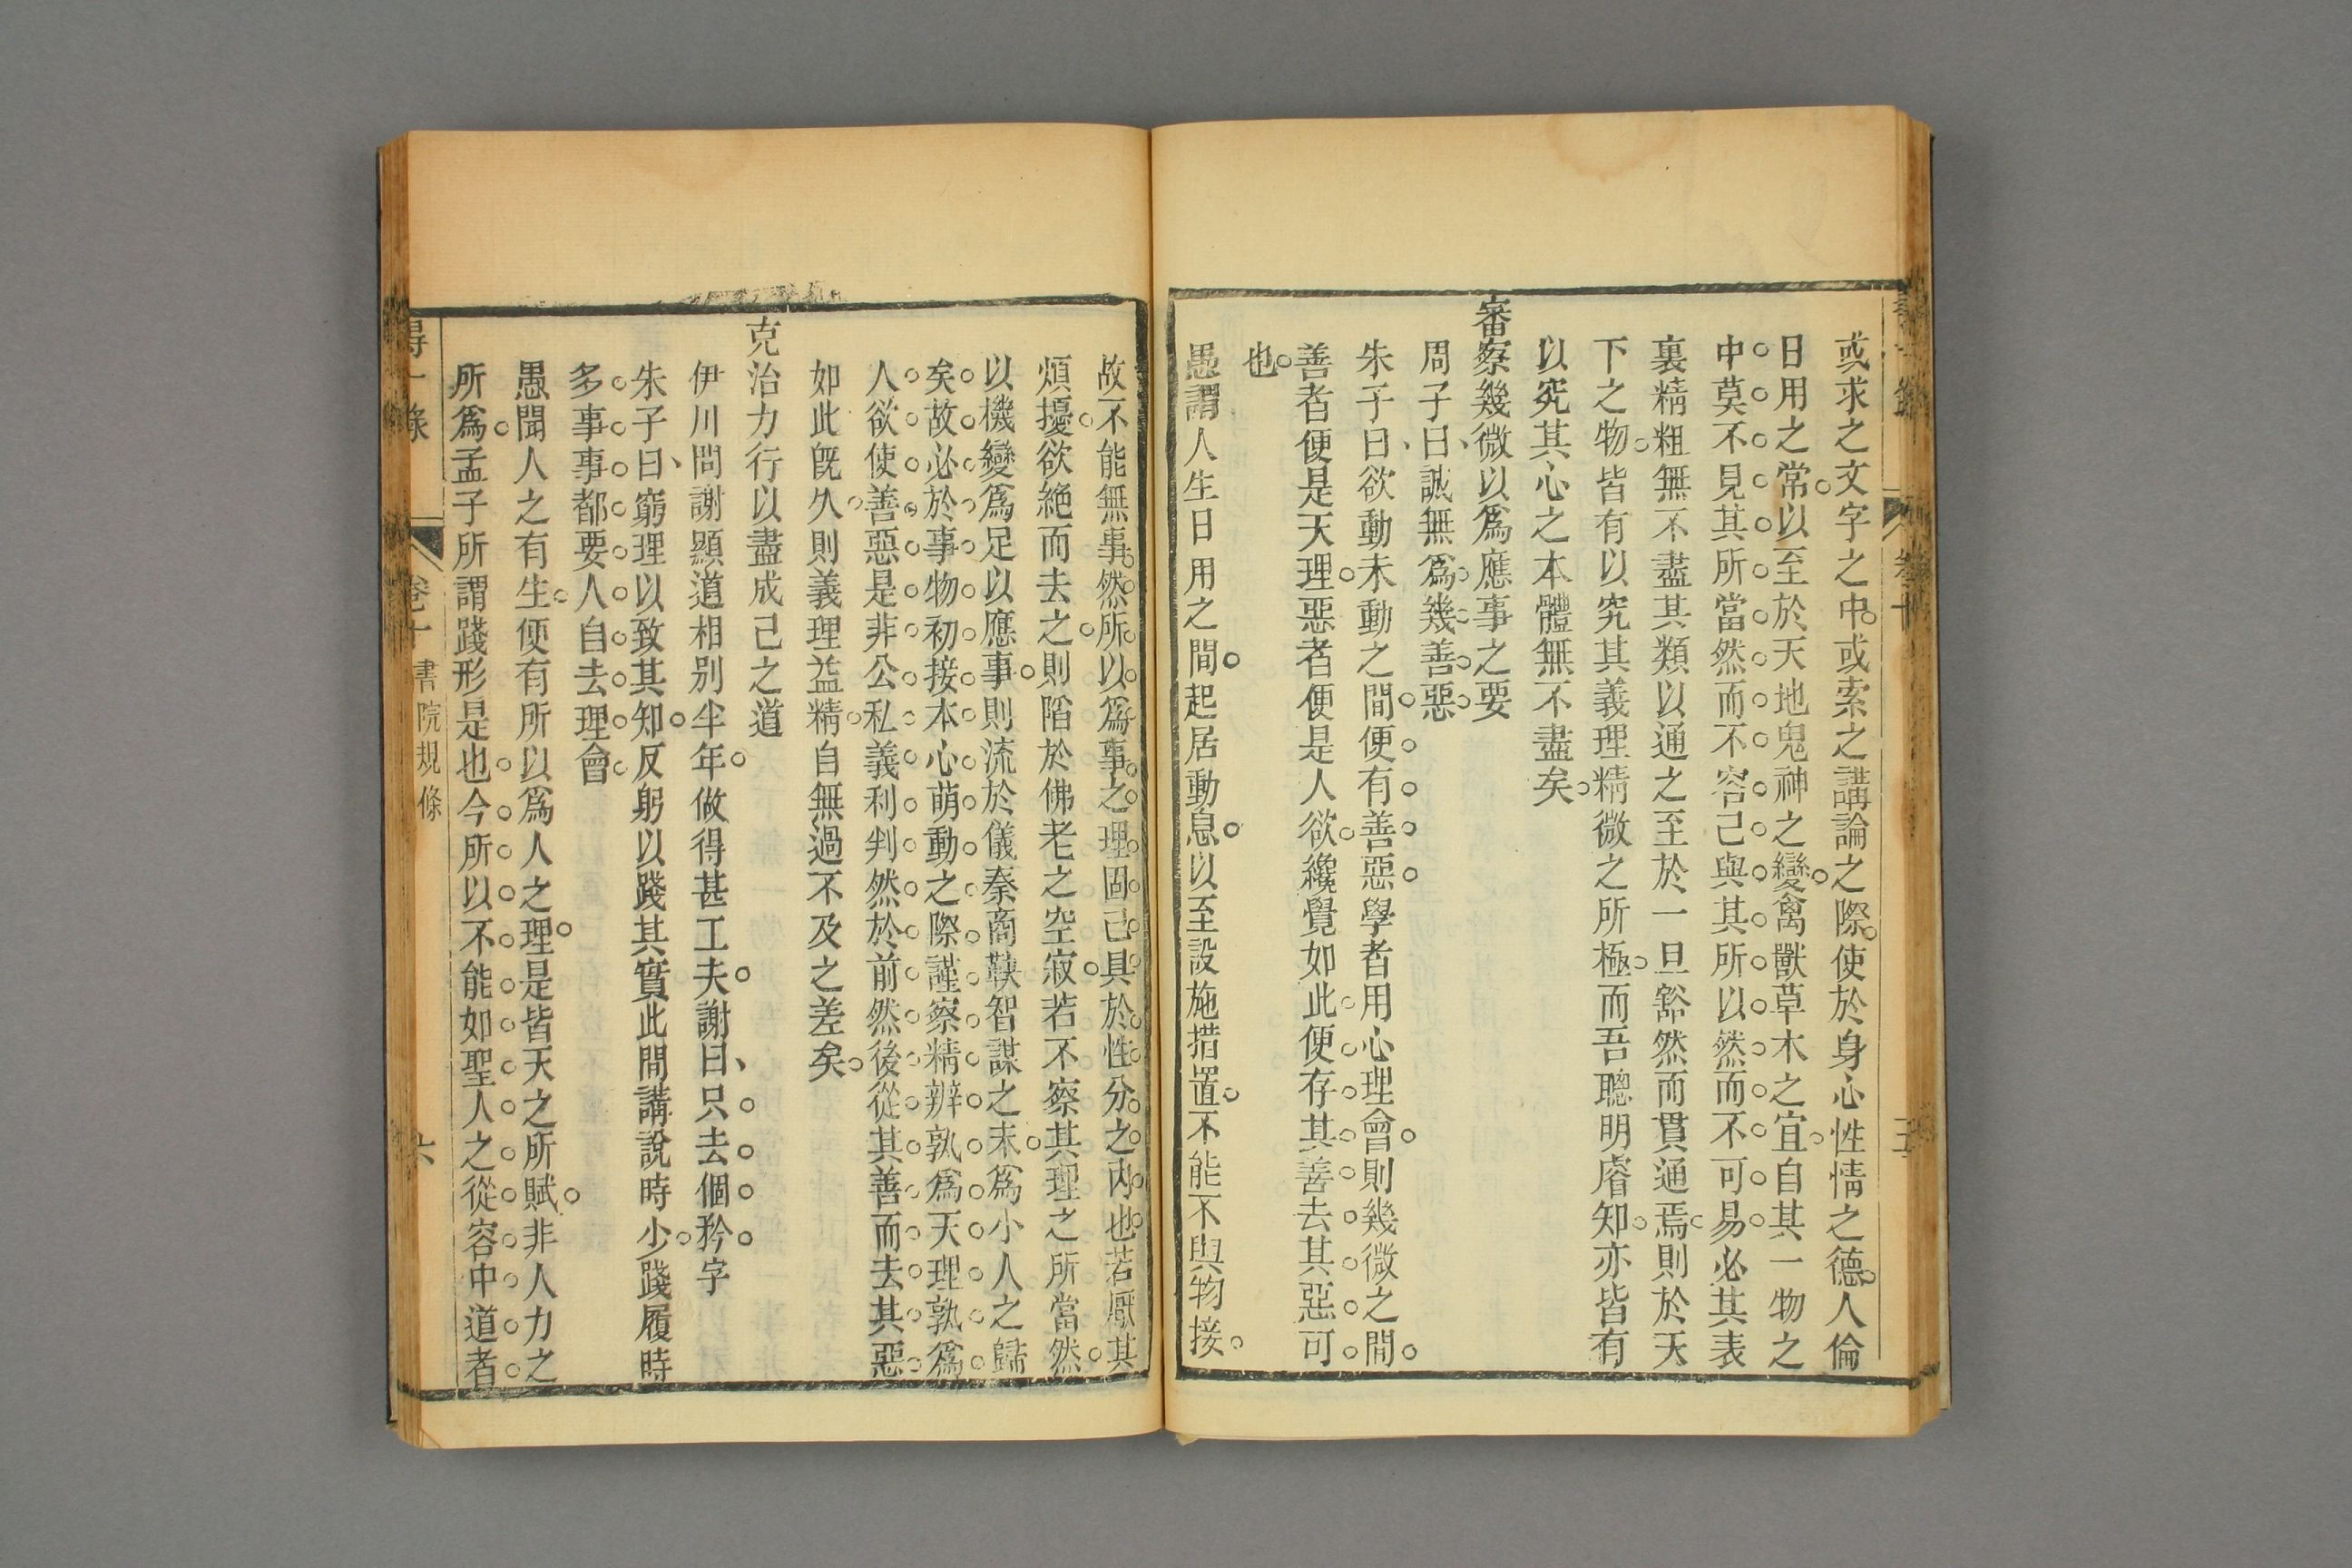 或求之文字之中或索之講論之際使於身心性情之德人倫
日用之常以至於天地鬼神之變禽獸草木之宜自其一物之
中莫不見其所當然而不容己與其所以然而不可易必其表
裏精粗無不盡其類以通之至於一旦豁然而貫通焉則於天
下之物皆有以究其義理精微之所極而吾聰明睿知亦皆有
以究其心之本體無不盡矣
審察幾微以爲應事之要
周子曰誠無爲幾善惡
朱子曰欲動未動之間便有善惡學者用心理會則幾微之間
善者便是天理惡者便是人欲纔覺如此便存其善去其惡可
也
愚謂人生日用之間起居動息以至設施措置不能不與物接
故不能無事然所以爲事之理固己具於性分之內也若厭其
煩擾欲絕而去之則陷於佛老之空寂若不察其理之所當然
以機變爲足以應事則流於儀秦商鞅智謀之末爲小人之歸
矣故必於事物初接本心萌動之際謹察精辨孰爲天理孰爲
人欲使善惡是非公私義利判然於前然後從其善而去其惡
如此既久則義理益精自無過不及之差矣
克治力行以盡成己之道
伊川問謝顯道相別半年做得甚工夫謝曰只去個矜字
朱子曰窮理以致其知反躬以踐其實此間講說時少踐履時
多事事都要人自去理會
愚聞人之有生便有所以爲人之理是皆天之所賦非人力之
所爲孟子所謂踐形是也今所以不能如聖人之從容中道者
得一錄 卷十 書院規條 六